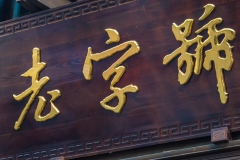 老字號